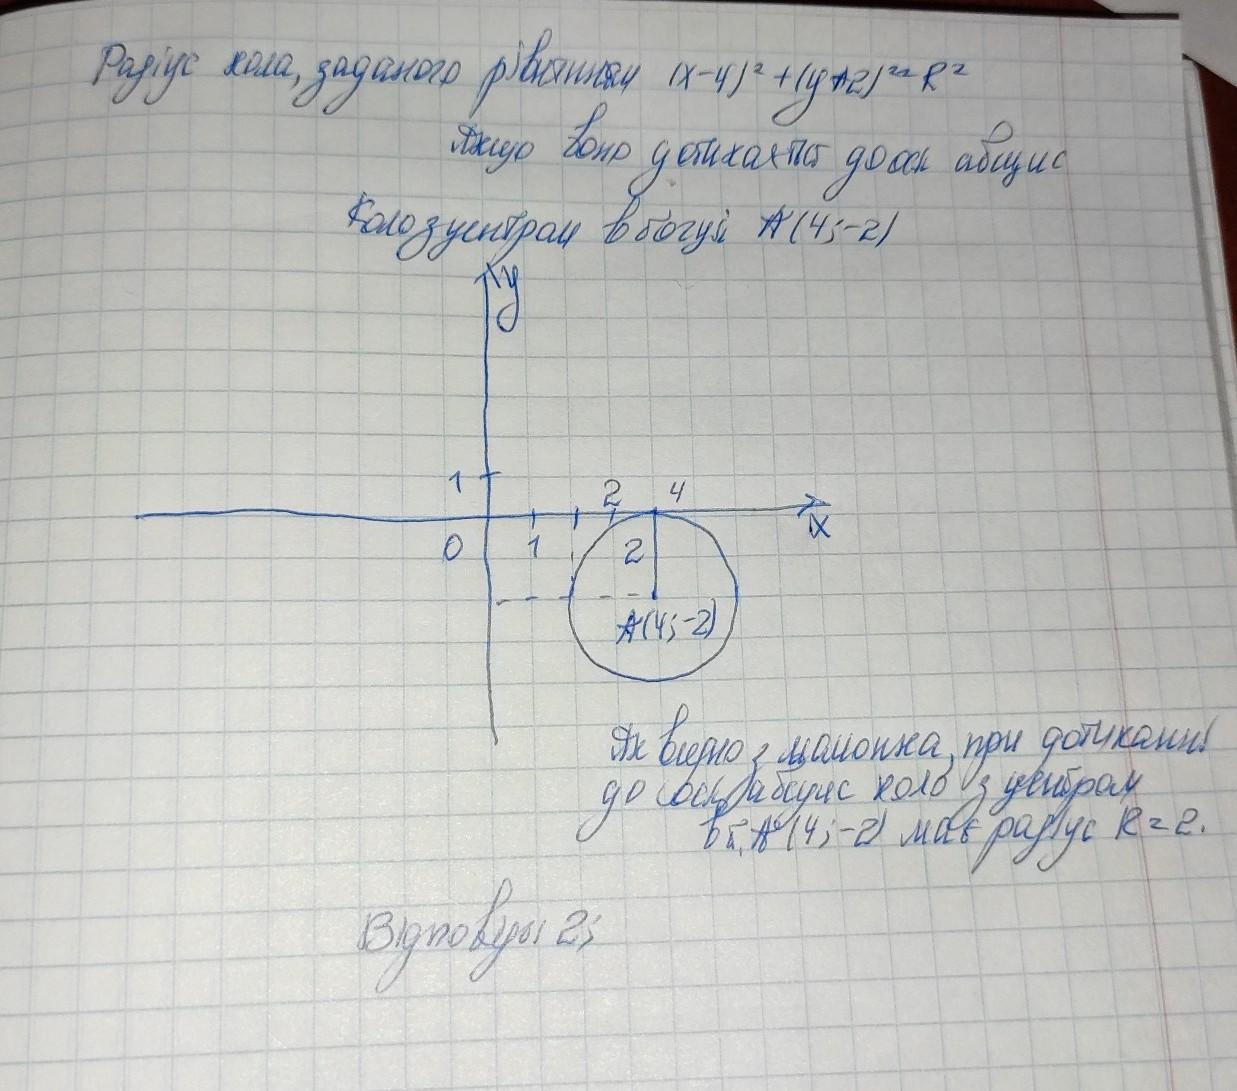 Радіус кола, заданого рівнянням (x-4)² + (y+2)² = R²
Якщо воно дотикається до осі абсцис
Коло з центром в точці A(4;-2)
y
1
2 4
x
0 1 2
A(4;-2)
Як видно з малюнка, при дотиканні
до осі абсцис коло з центром
в т. A(4;-2) має радіус R=2.
Відповідь: 2;